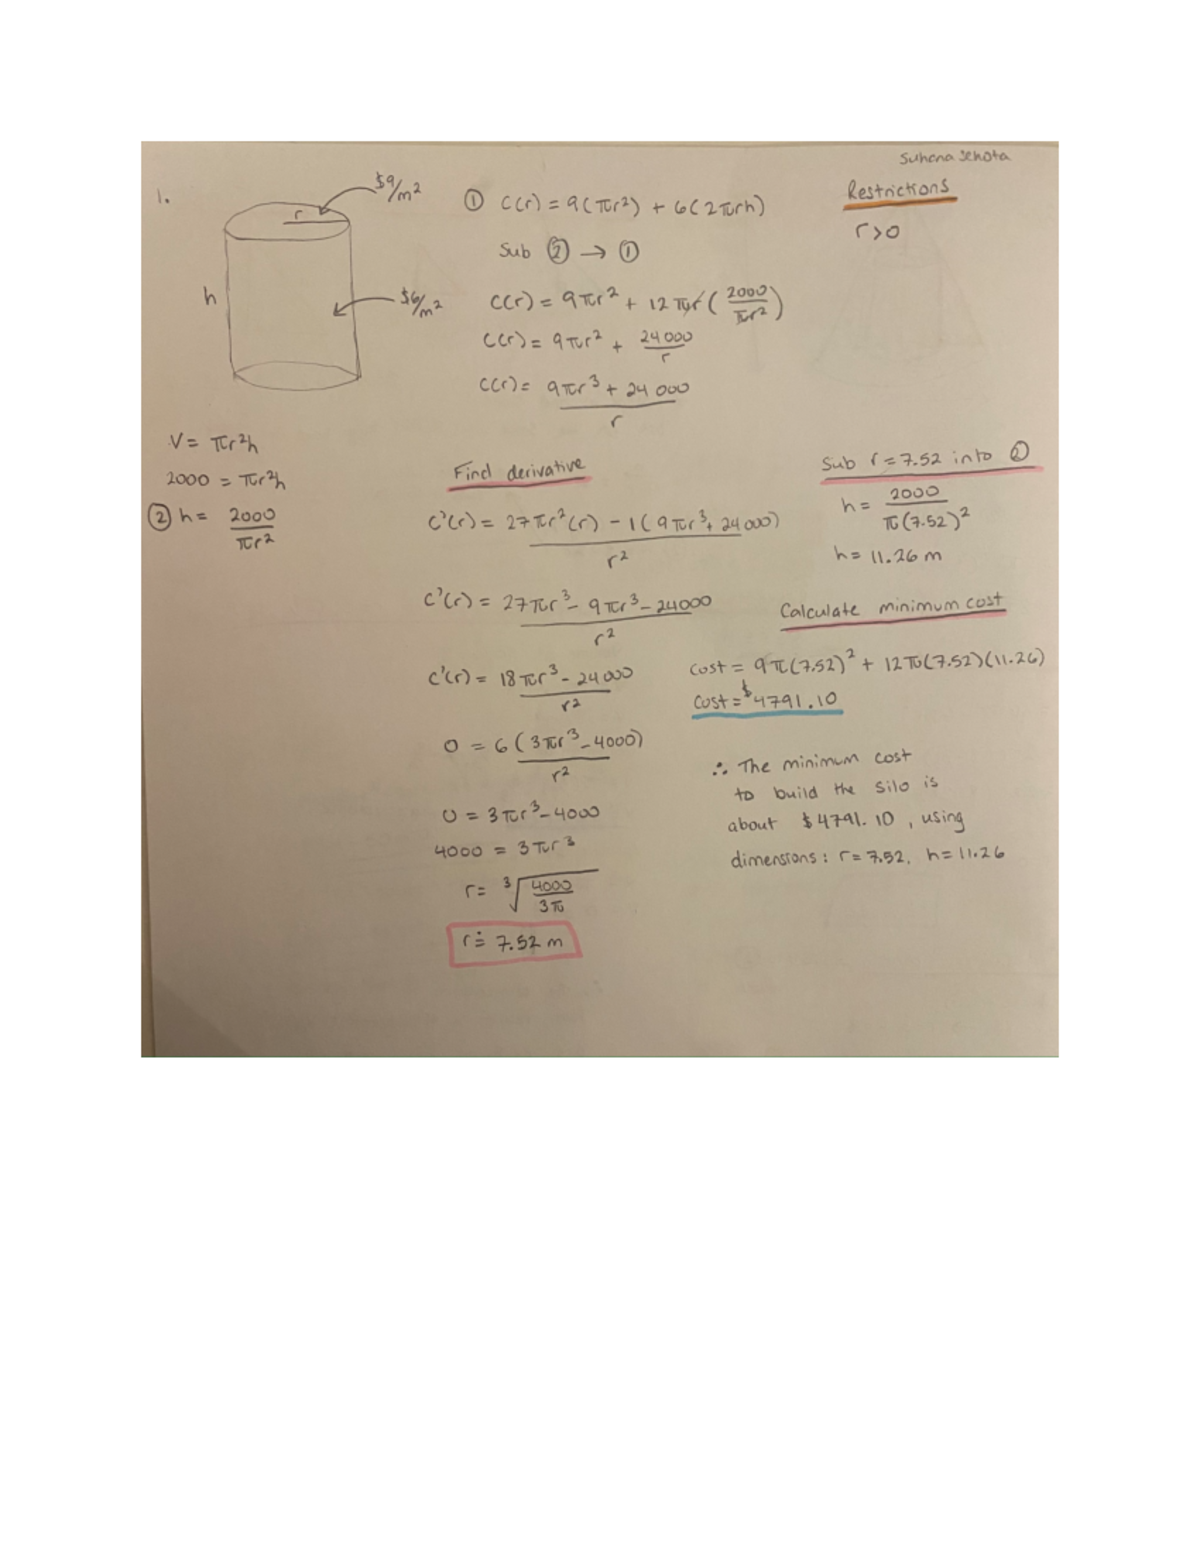 Suhana Sekota
1.
$9/m²
r
h
$6/m²
V = πr²h
2000 = πr²h
② h = 2000/πr²
① C(r) = 9(πr²) + 6(2πrh)
Sub ② → ①
C(r) = 9πr² + 12πr(2000/πr²)
C(r) = 9πr² + 24000/r
C(r) = (9πr³ + 24000)/r
Restrictions
r > 0
Find derivative
C'(r) = (27πr²(r) - 1(9πr³ + 24000))/r²
C'(r) = (27πr³ - 9πr³ - 24000)/r²
C'(r) = (18πr³ - 24000)/r²
0 = 6(3πr³ - 4000)/r²
0 = 3πr³ - 4000
4000 = 3πr³
r = ³√(4000/3π)
r ≐ 7.52 m
Sub r = 7.52 into ②
h = 2000/π(7.52)²
h = 11.26 m
Calculate minimum cost
Cost = 9π(7.52)² + 12π(7.52)(11.26)
Cost = $4791.10
∴ The minimum cost
to build the silo is
about $4791.10, using
dimensions: r = 7.52, h = 11.26